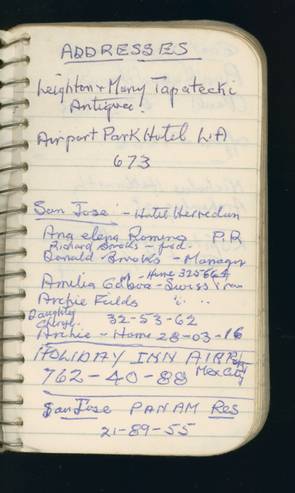 ADDRESSES
Leighton + Mary Tapatecki
Antigua.
Airport Park Hotel LA
673
San Jose - Hotel Herredun
Ana elena Romero P.R
Richard Brooks - fred.
Donald Brooks - Manager
Home 325664
Amelia Swiss
Archie Fields " "
Daughter
Cheryl. 32-53-62
Archie - Home 28-03-16
HOLIDAY INN AIRPT
762-40-88 Mex City
San Jose PANAM Res
21-89-55